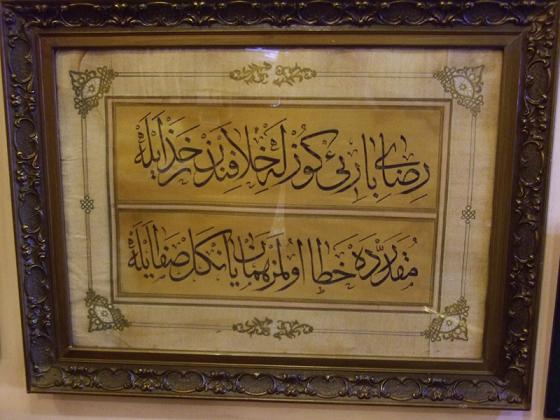 رضای بارئی کوزله خلافندن حذر ایله
مقدرده خطا اولمز همان صفا ایله